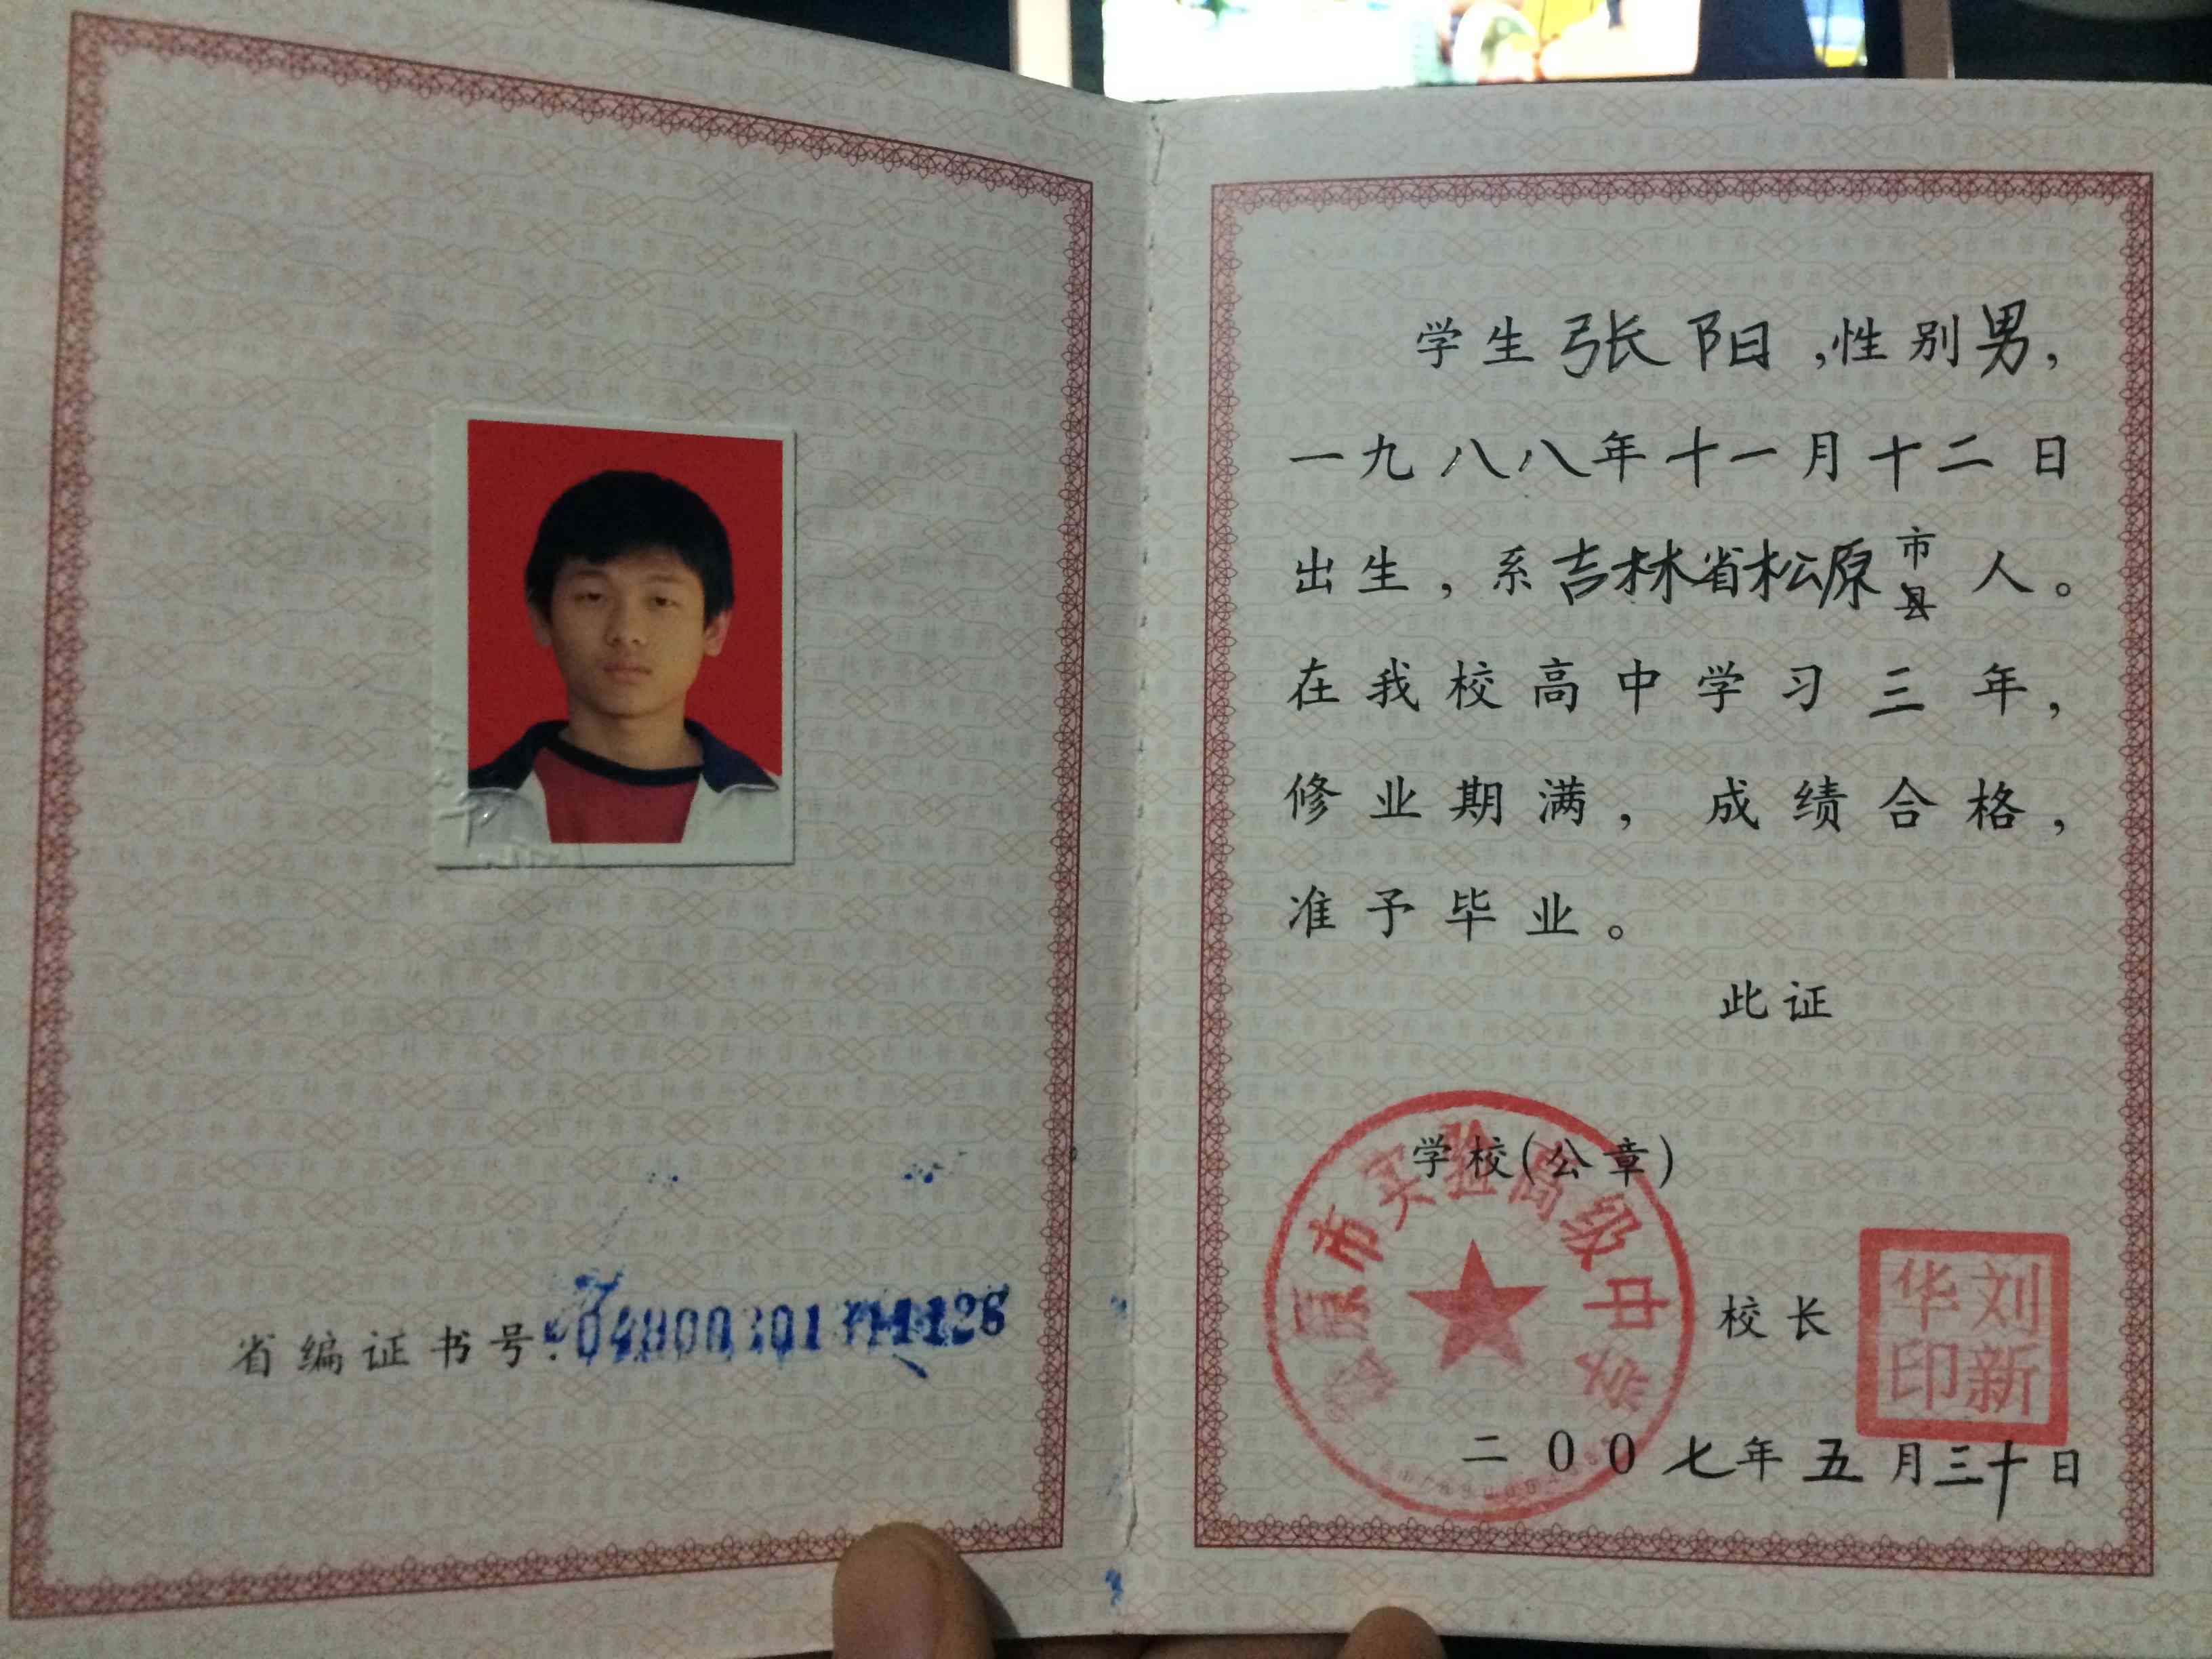 省编证书号:
学生张阳,性别男,
一九八八年十一月十二日
出生,系吉林省松原市县人。
在我校高中学习三年,
修业期满,成绩合格,
准予毕业。
此证
学校(公章)
原市实验高级中学
校长
刘新华印
二00七年五月三十日